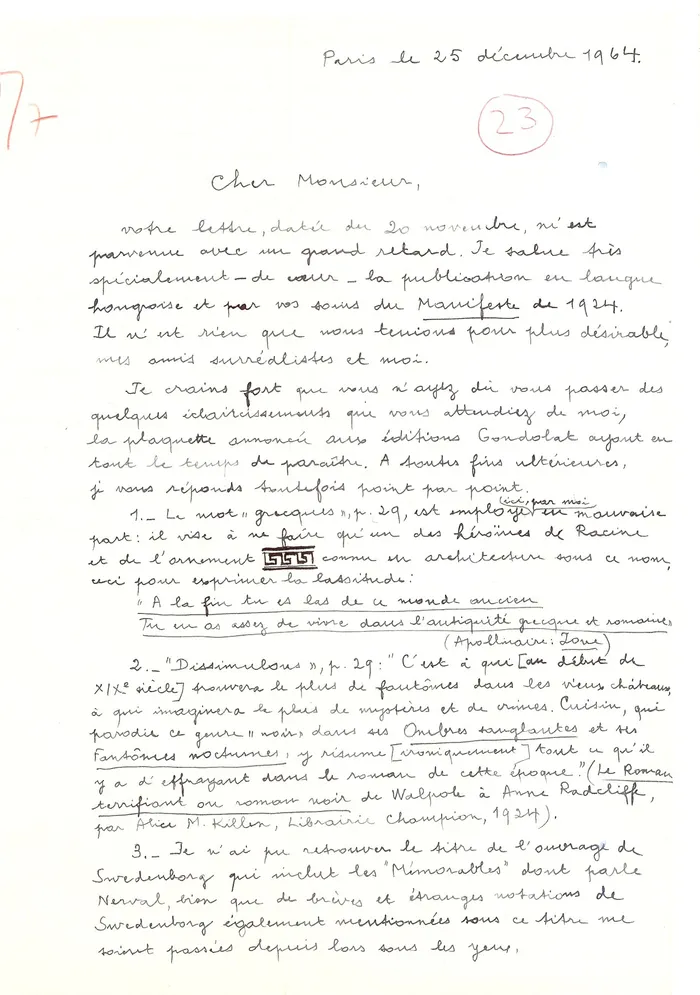 Paris le 25 décembre 1964.
7
23
Cher Monsieur,
votre lettre, datée du 20 novembre, m'est
parvenue avec un grand retard. Je salue très
spécialement – de cœur – la publication en langue
hongroise et par vos soins du Manifeste de 1924.
Il n'est rien que nous tenions pour plus désirable,
mes amis surréalistes et moi.
Je crains fort que vous n'ayez dû vous passer des
quelques éclaircissements que vous attendiez de moi,
la plaquette annoncée aux éditions Gondolat ayant eu
tout le temps de paraître. A toutes fins ultérieures,
je vous réponds toutefois point par point.
(ici, par moi
1._ Le mot "grecques", p. 29, est employé en mauvaise
part : il vise à ne faire qu'un des héroïnes de Racine
et de l'ornement connu en architecture sous ce nom,
ceci pour exprimer la lassitude :
"A la fin tu es las de ce monde ancien
Tu en as assez de vivre dans l'antiquité grecque et romaine"
(Apollinaire : Zone)
2._ "Dissimulons", p. 29 : "C'est à qui [au début de
XIXe siècle] trouvera le plus de fantômes dans les vieux châteaux,
à qui imaginera le plus de mystères et de crimes. Cuisin, qui
parodie ce genre "noir" dans ses Ombres sanglantes et ses
Fantômes nocturnes, y résume [ironiquement] tout ce qu'il
y a d'effrayant dans le roman de cette époque." (Le Roman
terrifiant ou roman noir de Walpole à Anne Radcliffe,
par Alice M. Killen, Librairie Champion, 1924).
3._ Je n'ai pu retrouver le titre de l'ouvrage de
Swedenborg qui inclut les "Mémorables" dont parle
Nerval, bien que de brèves et étranges notations de
Swedenborg également mentionnées sous ce titre me
soient passées depuis lors sous les yeux.